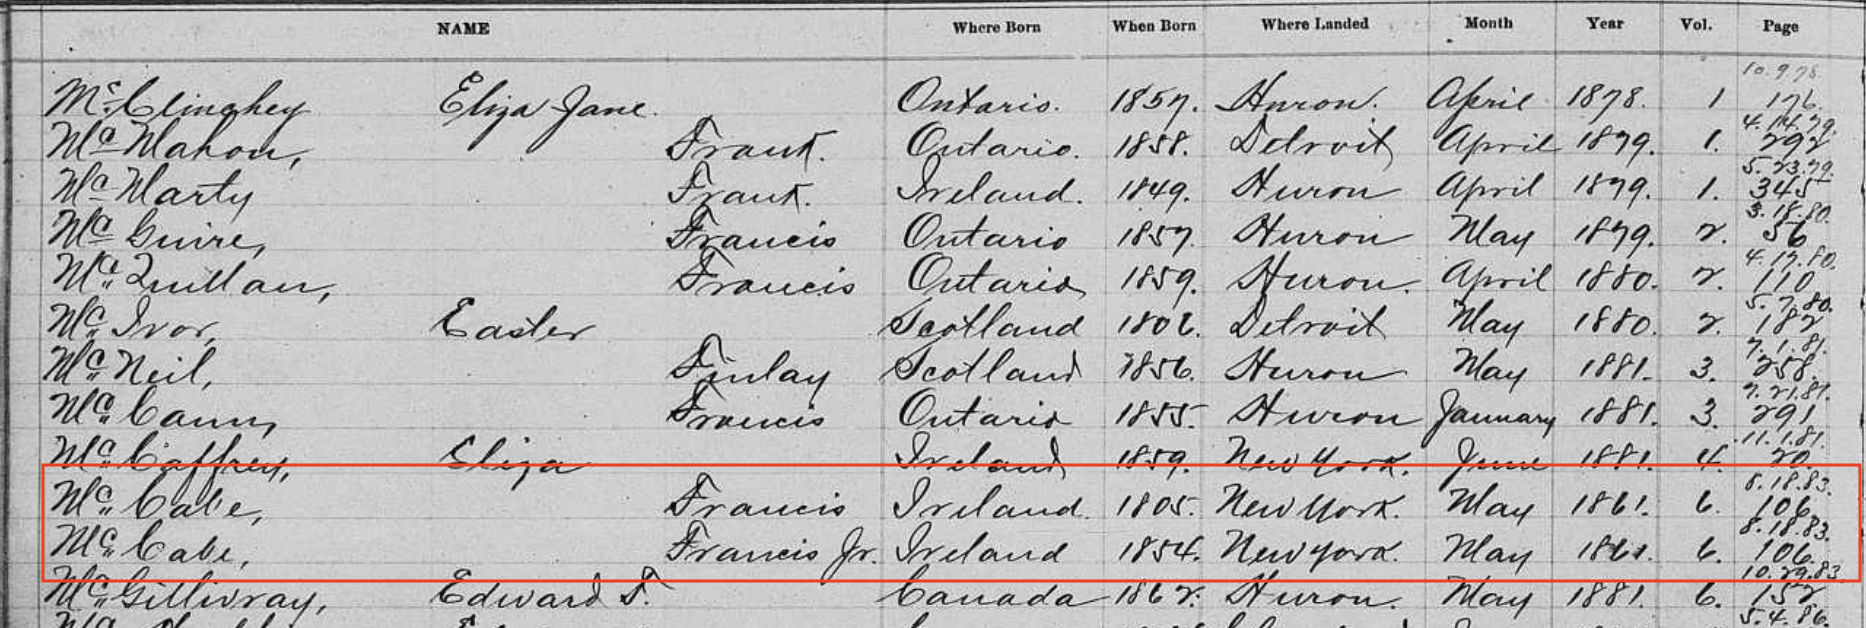 NAME Where Born When Born Where Landed Month Year Vol. Page
10.9.78.
McClinghey Eliza Jane. Ontario. 1857. Huron. April 1878. 1 176.
4.14.79.
McMahon, Frank. Ontario. 1858. Detroit April 1879. 1. 292
5.23.79.
McMarty Frank. Ireland. 1849. Huron April 1879. 1. 345
3.18.80.
McGuire, Francis Ontario 1857. Huron May 1879. 2. 56
4.17.80.
McQuillan, Francis Ontario 1859. Huron. April 1880. 2. 110
5.7.80.
McIvor, Easter Scotland Detroit May 1880. 2. 182
7.1.81.
McNeil, Finlay Scotland 1856. Huron May 1881. 3. 258.
7.21.81.
McCann, Francis Ontario 1855. Huron January 1881. 3. 291
11.1.81.
McCaffrey, Eliza Ireland 1859. New York. June 1881. 4. 20.
8.18.83.
McCabe, Francis Ireland. 1805. New York. May 1861. 6. 106
8.18.83.
McCabe, Francis Jr. Ireland 1854. New York. May 1861. 6. 106.
10.29.83.
McGillivray, Edward F. Canada 1862. Huron. May 1881. 6. 152
5.4.86.